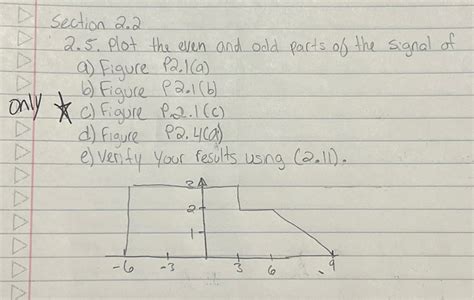 Section 2.2
2.5. Plot the even and odd parts of the signal of
a) Figure P2.1(a)
b) Figure P2.1(b)
only ★ c) Figure P.2.1(c)
d) Figure P2.4(a)
e) Verify your results using (2.11).
3
2
1
-6 -3 3 6 9